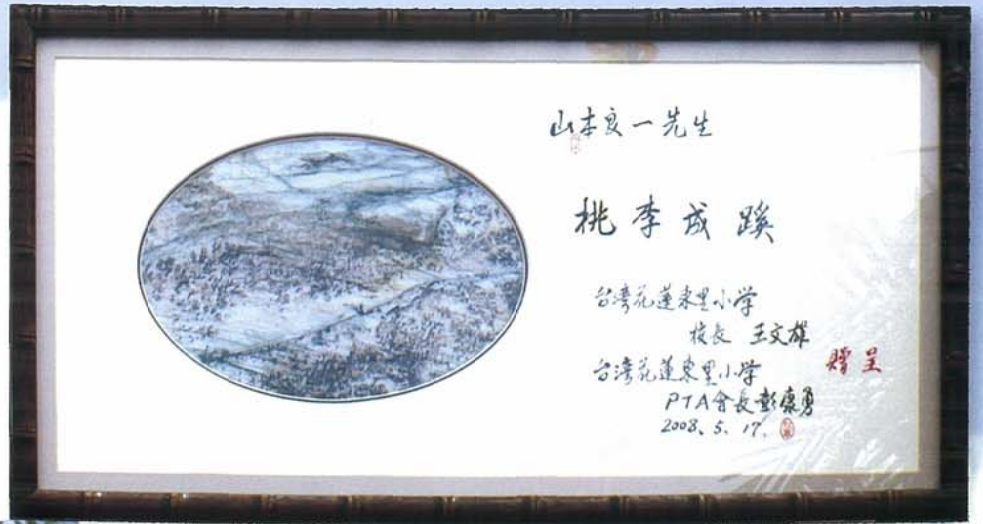 山本良一先生
桃李成蹊
台湾花蓮東里小学
校長 王文雄
台湾花蓮東里小学
PTA会長彭康勇
2008、5、17.
贈呈